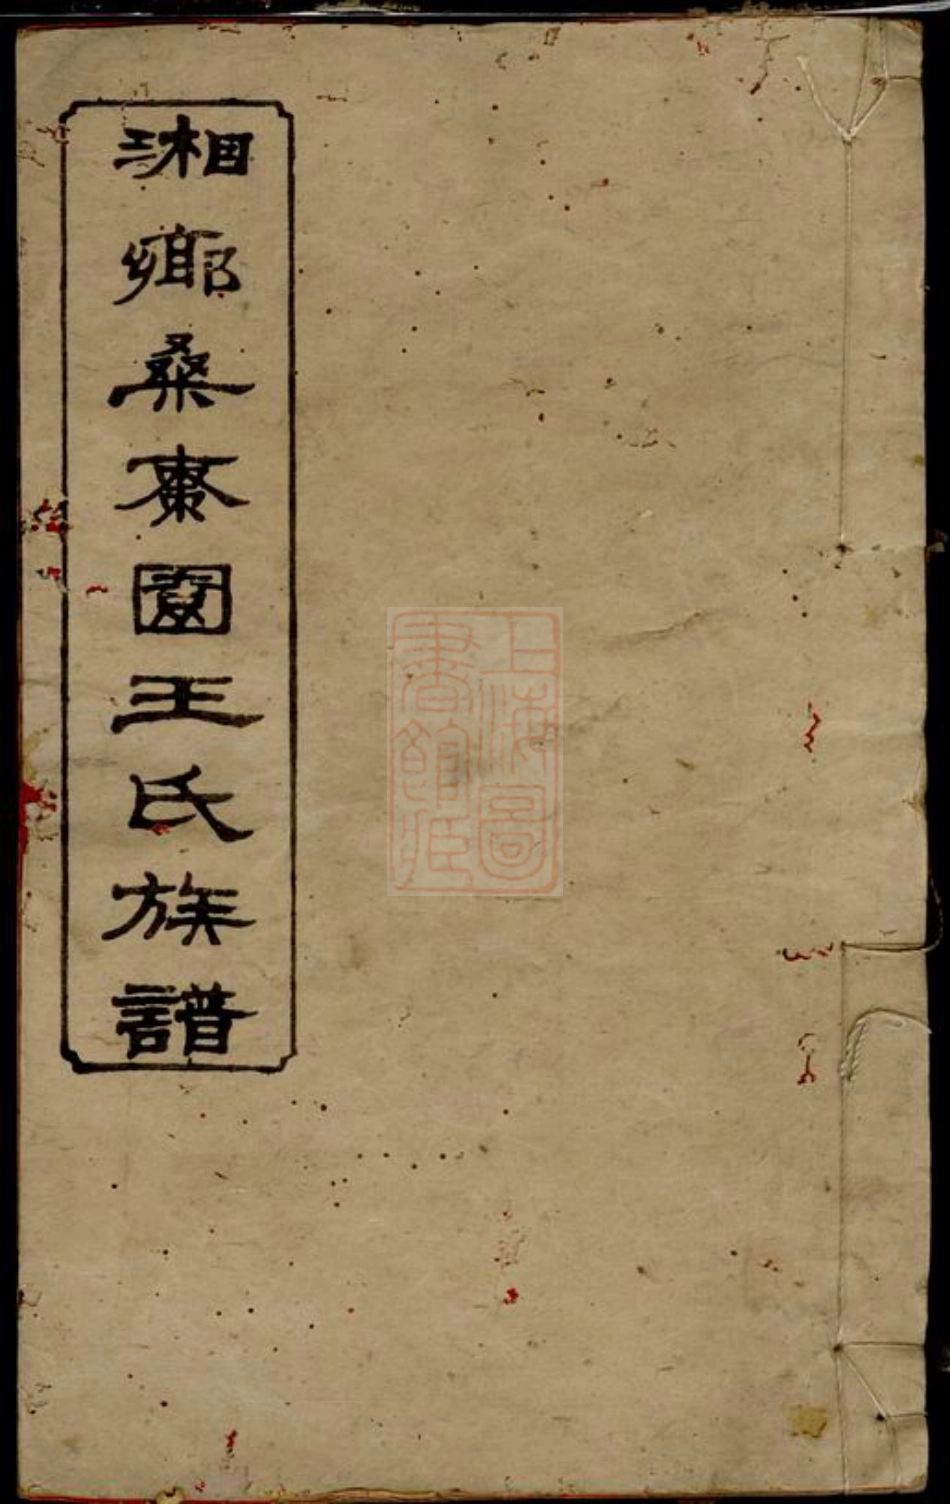 湘鄉桑棗園王氏族譜
上海圖
書館藏